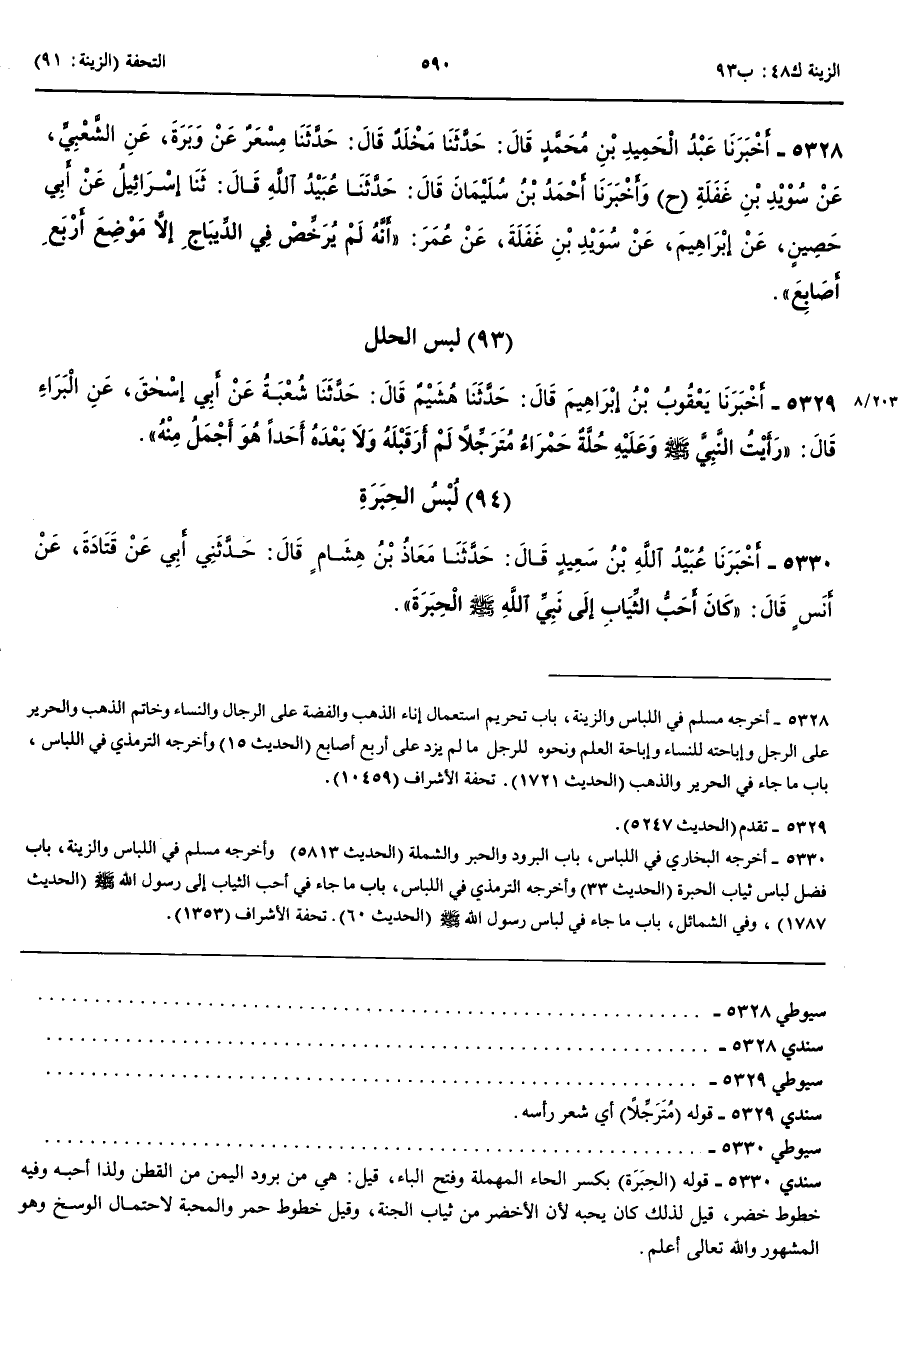 الزينة ك٤٨: ب٩٣ ٥٩٠ التحفة (الزينة: ٩١)
٥٣٢٨ ـ أَخْبَرَنَا عَبْدُ الْحَمِيدِ بْنِ مُحَمَّدٍ قَالَ: حَدَّثَنَا مَخْلَدٌ قَالَ: حَدَّثَنَا مِسْعَرٌ عَنْ وَبَرَةَ، عَنِ الشَّعْبِيِّ،
عَنْ سُوَيْدِ بْنِ غَفَلَةِ (ح) وَأَخْبَرَنَا أَحْمَدُ بْنُ سُلَيْمَانَ قَالَ: حَدَّثَنَا عُبَيْدُ اللَّهِ قَالَ: ثَنَا إِسْرَائِيلُ عَنْ أَبِي
حَصِينٍ، عَنْ إِبْرَاهِيمَ، عَنْ سُوَيْدِ بْنِ غَفَلَةَ، عَنْ عُمَرَ: «أَنَّهُ لَمْ يُرَخِّصْ فِي الدِّيبَاجِ إِلَّا مَوْضِعَ أَرْبَعِ
أَصَابِعَ».
(٩٣) لبس الحلل
٥٣٢٩ ـ أَخْبَرَنَا يَعْقُوبُ بْنُ إِبْرَاهِيمَ قَالَ: حَدَّثَنَا هُشَيْمٌ قَالَ: حَدَّثَنَا شُعْبَةُ عَنْ أَبِي إِسْحٰقَ، عَنِ الْبَرَاءِ ٨/٢٠٣
قَالَ: «رَأَيْتُ النَّبِيَّ ﷺ وَعَلَيْهِ حُلَّةٌ حَمْرَاءُ مُتَرَجِّلًا لَمْ أَرَ قَبْلَهُ وَلَا بَعْدَهُ أَحَداً هُوَ أَجْمَلُ مِنْهُ».
(٩٤) لُبْسُ الحِبَرَةِ
٥٣٣٠ ـ أَخْبَرَنَا عُبَيْدُ اللَّهِ بْنُ سَعِيدٍ قَالَ: حَدَّثَنَا مَعَاذُ بْنُ هِشَامٍ قَالَ: حَدَّثَنِي أَبِي عَنْ قَتَادَةَ، عَنْ
أَنَسٍ قَالَ: «كَانَ أَحَبُّ الثِّيَابِ إِلَى نَبِيِّ اللَّهِ ﷺ الْحِبَرَةَ».
٥٣٢٨ ـ أخرجه مسلم في اللباس والزينة، باب تحريم استعمال إناء الذهب والفضة على الرجال والنساء وخاتم الذهب والحرير
على الرجل وإباحته للنساء وإباحة العلم ونحوه للرجل ما لم يزد على أربع أصابع (الحديث ١٥) وأخرجه الترمذي في اللباس،
باب ما جاء في الحرير والذهب (الحديث ١٧٢١). تحفة الأشراف (١٠٤٥٩).
٥٣٢٩ ـ تقدم (الحديث ٥٢٤٧).
٥٣٣٠ ـ أخرجه البخاري في اللباس، باب البرود والحبر والشملة (الحديث ٥٨١٣) وأخرجه مسلم في اللباس والزينة، باب
فضل لباس ثياب الحبرة (الحديث ٣٣) وأخرجه الترمذي في اللباس، باب ما جاء في أحب الثياب إلى رسول الله ﷺ (الحديث
١٧٨٧)، وفي الشمائل، باب ما جاء في لباس رسول الله ﷺ (الحديث ٦٠). تحفة الأشراف (١٣٥٣).
سيوطي ٥٣٢٨ ـ . . . . . . . . . . . . . . . . . . . .
سندي ٥٣٢٨ ـ . . . . . . . . . . . . . . . . . . . .
سيوطي ٥٣٢٩ ـ . . . . . . . . . . . . . . . . . . . .
سندي ٥٣٢٩ ـ قوله (مُتَرَجِّلًا) أي شعر رأسه.
سيوطي ٥٣٣٠ ـ . . . . . . . . . . . . . . . . . . . .
سندي ٥٣٣٠ ـ قوله (الحِبَرَة) بكسر الحاء المهملة وفتح الباء، قيل: هي من برود اليمن من القطن ولذا أحبه وفيه
خطوط خضر، قيل لذلك كان يحبه لأن الأخضر من ثياب الجنة، وقيل خطوط حمر والمحبة لاحتمال الوسخ وهو
المشهور والله تعالى أعلم.